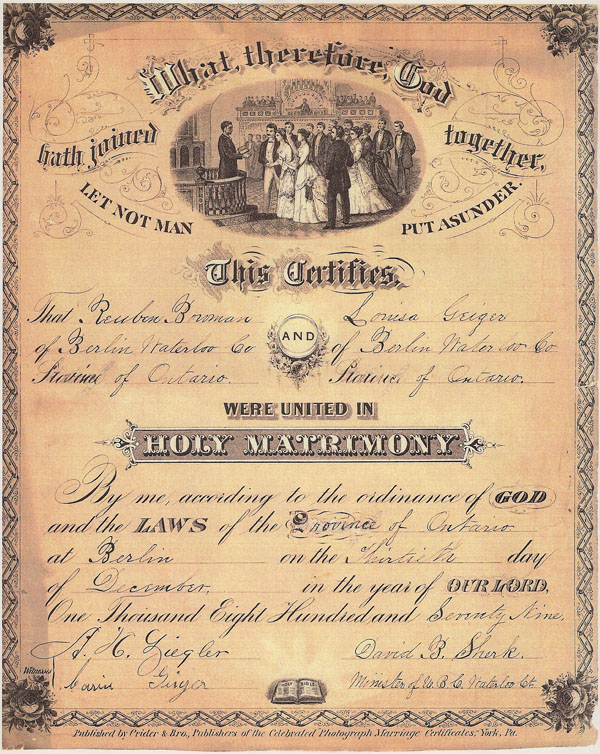 What, therefore, God
hath joined together,
LET NOT MAN PUT ASUNDER.
This Certifies,
That Reuben Bowman AND Louisa Geiger
of Berlin Waterloo Co of Berlin Waterloo Co
Province of Ontario. Province of Ontario.
WERE UNITED IN
HOLY MATRIMONY
By me, according to the ordinance of GOD
and the LAWS of the Province of Ontario
at Berlin on the Thirtieth day
of December, in the year of OUR LORD,
One Thousand Eight Hundred and Seventy Nine.
A. H. Ziegler David B. Sherk.
Witnesses Minister of U.B.C. Waterloo Ct
Published by Crider & Bro., Publishers of the Celebrated Photograph Marriage Certificates. York, Pa.